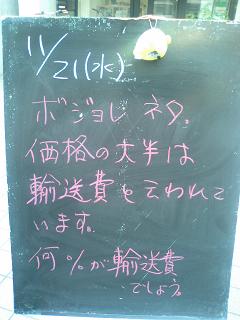 11/21(水)
ボジョレネタ。
価格の大半は
輸送費と云われて
います。
何%が輸送費
でしょう。